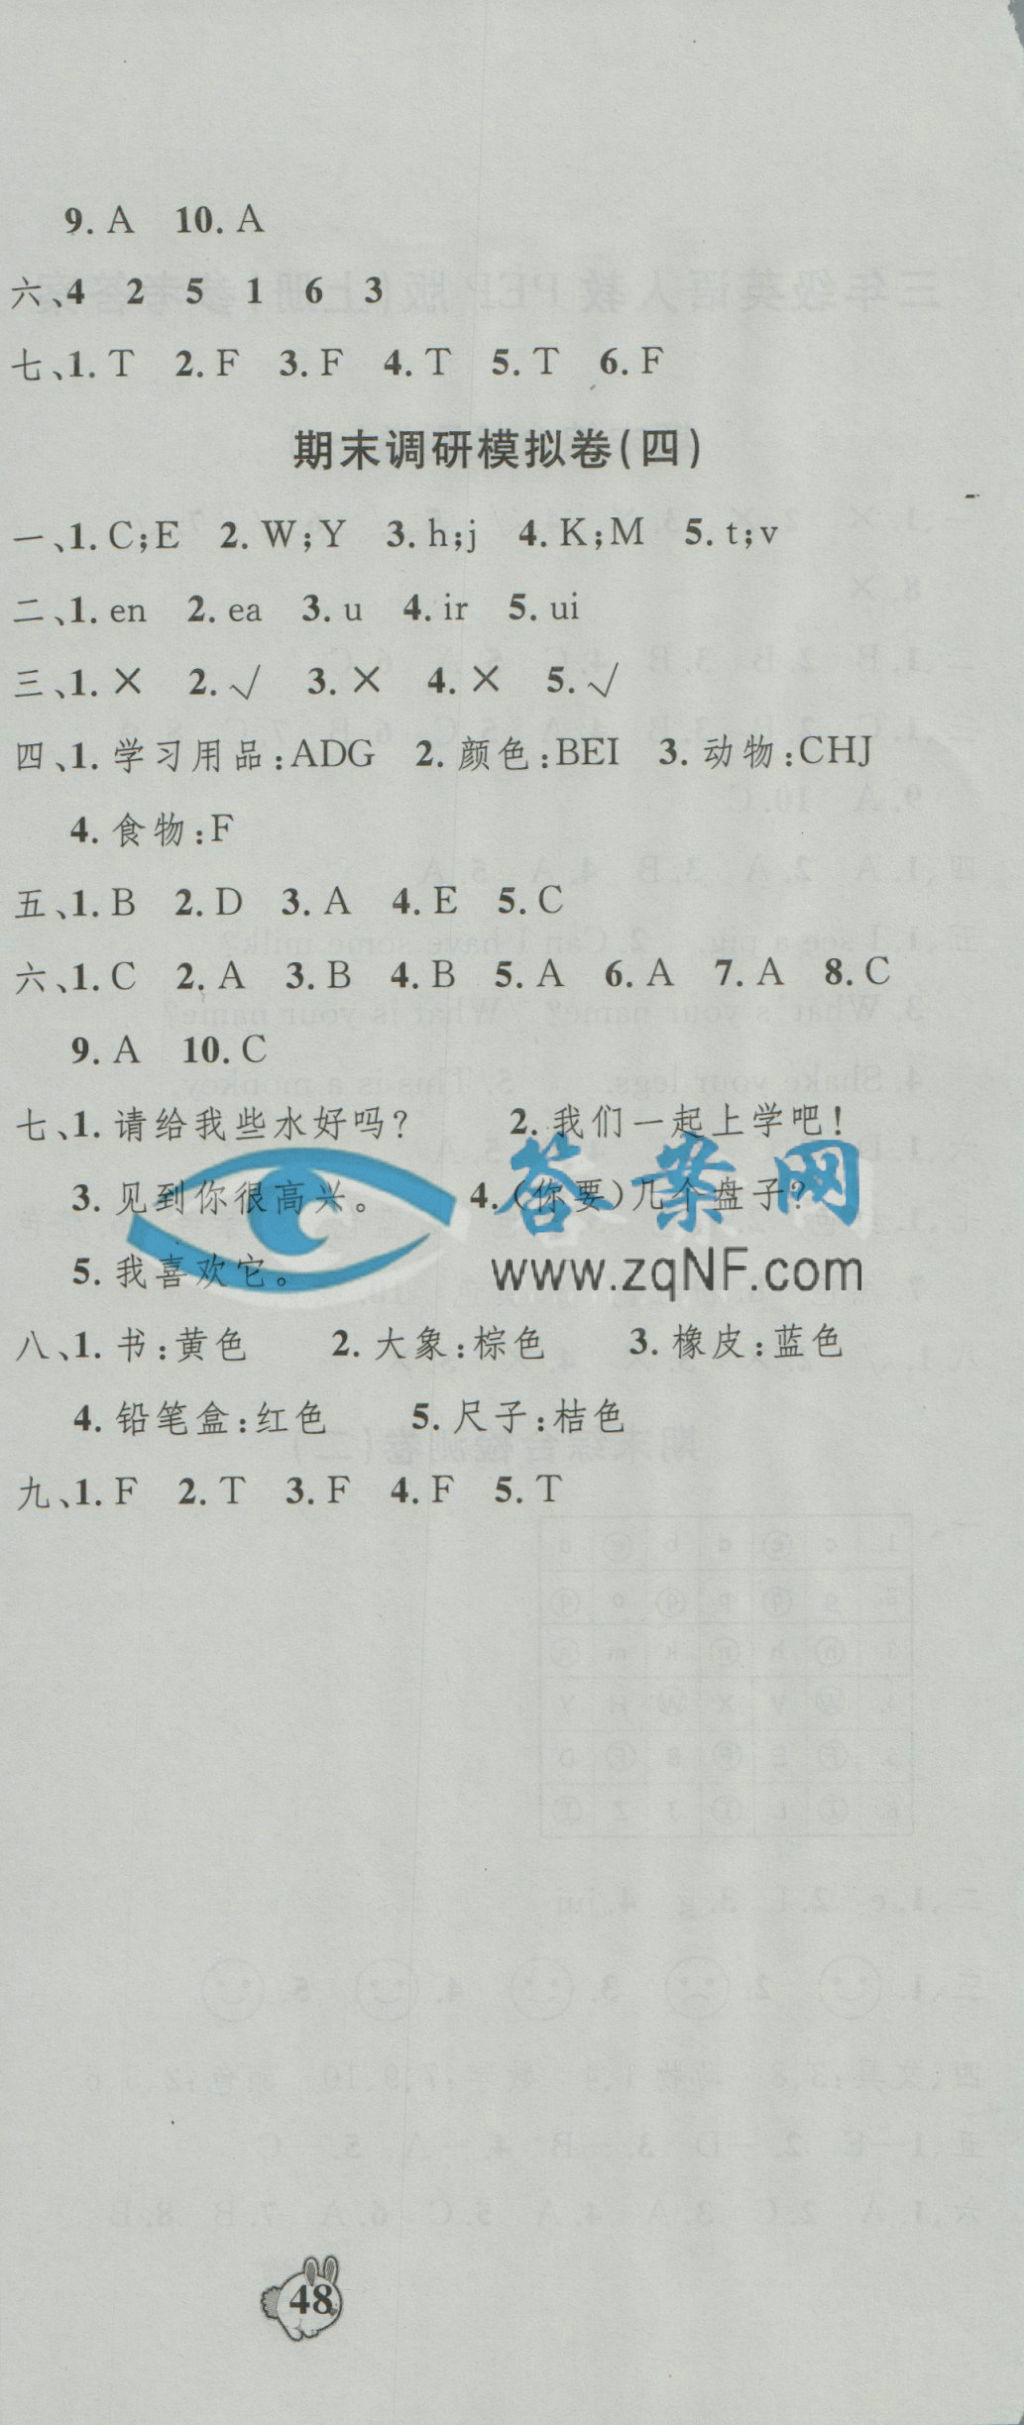 9. A 10. A
六、4 2 5 1 6 3
七、1. T 2. F 3. F 4. T 5. T 6. F
期末调研模拟卷(四)
一、1. C;E 2. W;Y 3. h;j 4. K;M 5. t;v
二、1. en 2. ea 3. u 4. ir 5. ui
三、1. × 2. √ 3. × 4. × 5. √
四、1. 学习用品:ADG 2. 颜色:BEI 3. 动物:CHJ
4. 食物:F
五、1. B 2. D 3. A 4. E 5. C
六、1. C 2. A 3. B 4. B 5. A 6. A 7. A 8. C
9. A 10. C
七、1. 请给我些水好吗? 2. 我们一起上学吧!
3. 见到你很高兴。 4. (你要)几个盘子?
5. 我喜欢它。
答案网
www.zqNF.com
八、1. 书:黄色 2. 大象:棕色 3. 橡皮:蓝色
4. 铅笔盒:红色 5. 尺子:桔色
九、1. F 2. T 3. F 4. F 5. T
48